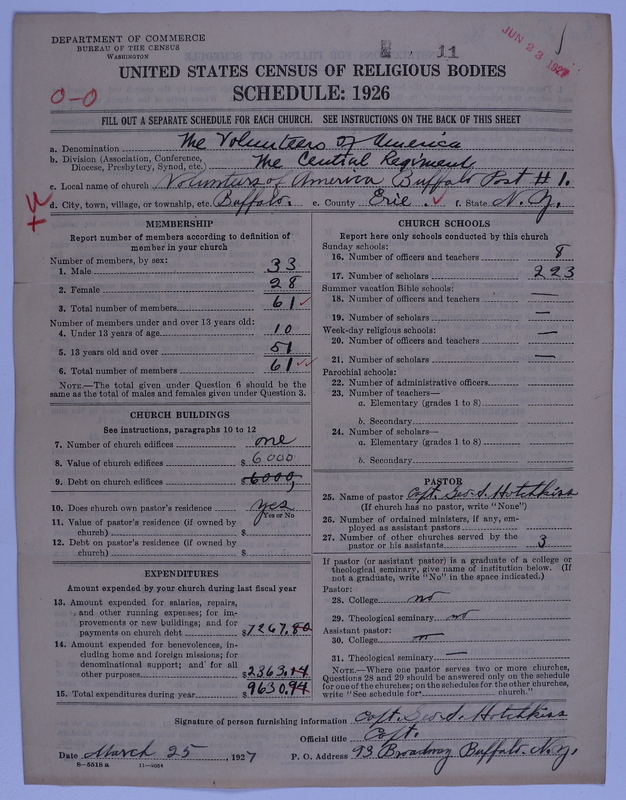 DEPARTMENT OF COMMERCE
BUREAU OF THE CENSUS
WASHINGTON
11
JUN 23 1927
UNITED STATES CENSUS OF RELIGIOUS BODIES
SCHEDULE: 1926
0-0
FILL OUT A SEPARATE SCHEDULE FOR EACH CHURCH. SEE INSTRUCTIONS ON THE BACK OF THIS SHEET
a. Denomination The Volunteers of America
b. Division (Association, Conference, Diocese, Presbytery, Synod, etc.) The Central Regiment
c. Local name of church Volunteers of America Buffalo Post #1.
d. City, town, village, or township, etc. Buffalo. e. County Erie. f. State N.Y.
MEMBERSHIP
Report number of members according to definition of
member in your church
Number of members, by sex:
1. Male 33
2. Female 28
3. Total number of members 61
Number of members under and over 13 years old:
4. Under 13 years of age 10
5. 13 years old and over 51
6. Total number of members 61
NOTE.—The total given under Question 6 should be
same as the total of males and females given under Question 3.
CHURCH BUILDINGS
See instructions, paragraphs 10 to 12
7. Number of church edifices one
8. Value of church edifices $ 6000
9. Debt on church edifices $ 6000,
10. Does church own pastor's residence yes
Yes or No
11. Value of pastor's residence (if owned by
church) $
12. Debt on pastor's residence (if owned by
church) $
EXPENDITURES
Amount expended by your church during last fiscal year
13. Amount expended for salaries, repairs,
and other running expenses; for im-
provements or new buildings; and for
payments on church debt $7267.80
14. Amount expended for benevolences, in-
cluding home and foreign missions; for
denominational support; and for all
other purposes $2363.14
15. Total expenditures during year $9630.94
CHURCH SCHOOLS
Report here only schools conducted by this church
Sunday schools:
16. Number of officers and teachers 8
17. Number of scholars 223
Summer vacation Bible schools:
18. Number of officers and teachers —
19. Number of scholars —
Week-day religious schools:
20. Number of officers and teachers —
21. Number of scholars —
Parochial schools:
22. Number of administrative officers
23. Number of teachers—
a. Elementary (grades 1 to 8)
b. Secondary
24. Number of scholars—
a. Elementary (grades 1 to 8)
b. Secondary
PASTOR
25. Name of pastor Capt. Geo. S. Hotchkiss
(If church has no pastor, write "None")
26. Number of ordained ministers, if any, em-
ployed as assistant pastors
27. Number of other churches served by the
pastor or his assistants 3
If pastor (or assistant pastor) is a graduate of a college or
theological seminary, give name of institution below. (If
not a graduate, write "No" in the space indicated.)
Pastor:
28. College no
29. Theological seminary no
Assistant pastor:
30. College —
31. Theological seminary —
NOTE.—Where one pastor serves two or more churches,
Questions 28 and 29 should be answered only on the schedule
for one of the churches; on the schedules for the other churches,
write "See schedule for church."
Signature of person furnishing information Capt. Geo. S. Hotchkiss
Official title Capt.
Date March 25, 1927 P. O. Address 93 Broadway Buffalo. N.Y.
8-5518 a 11-4054